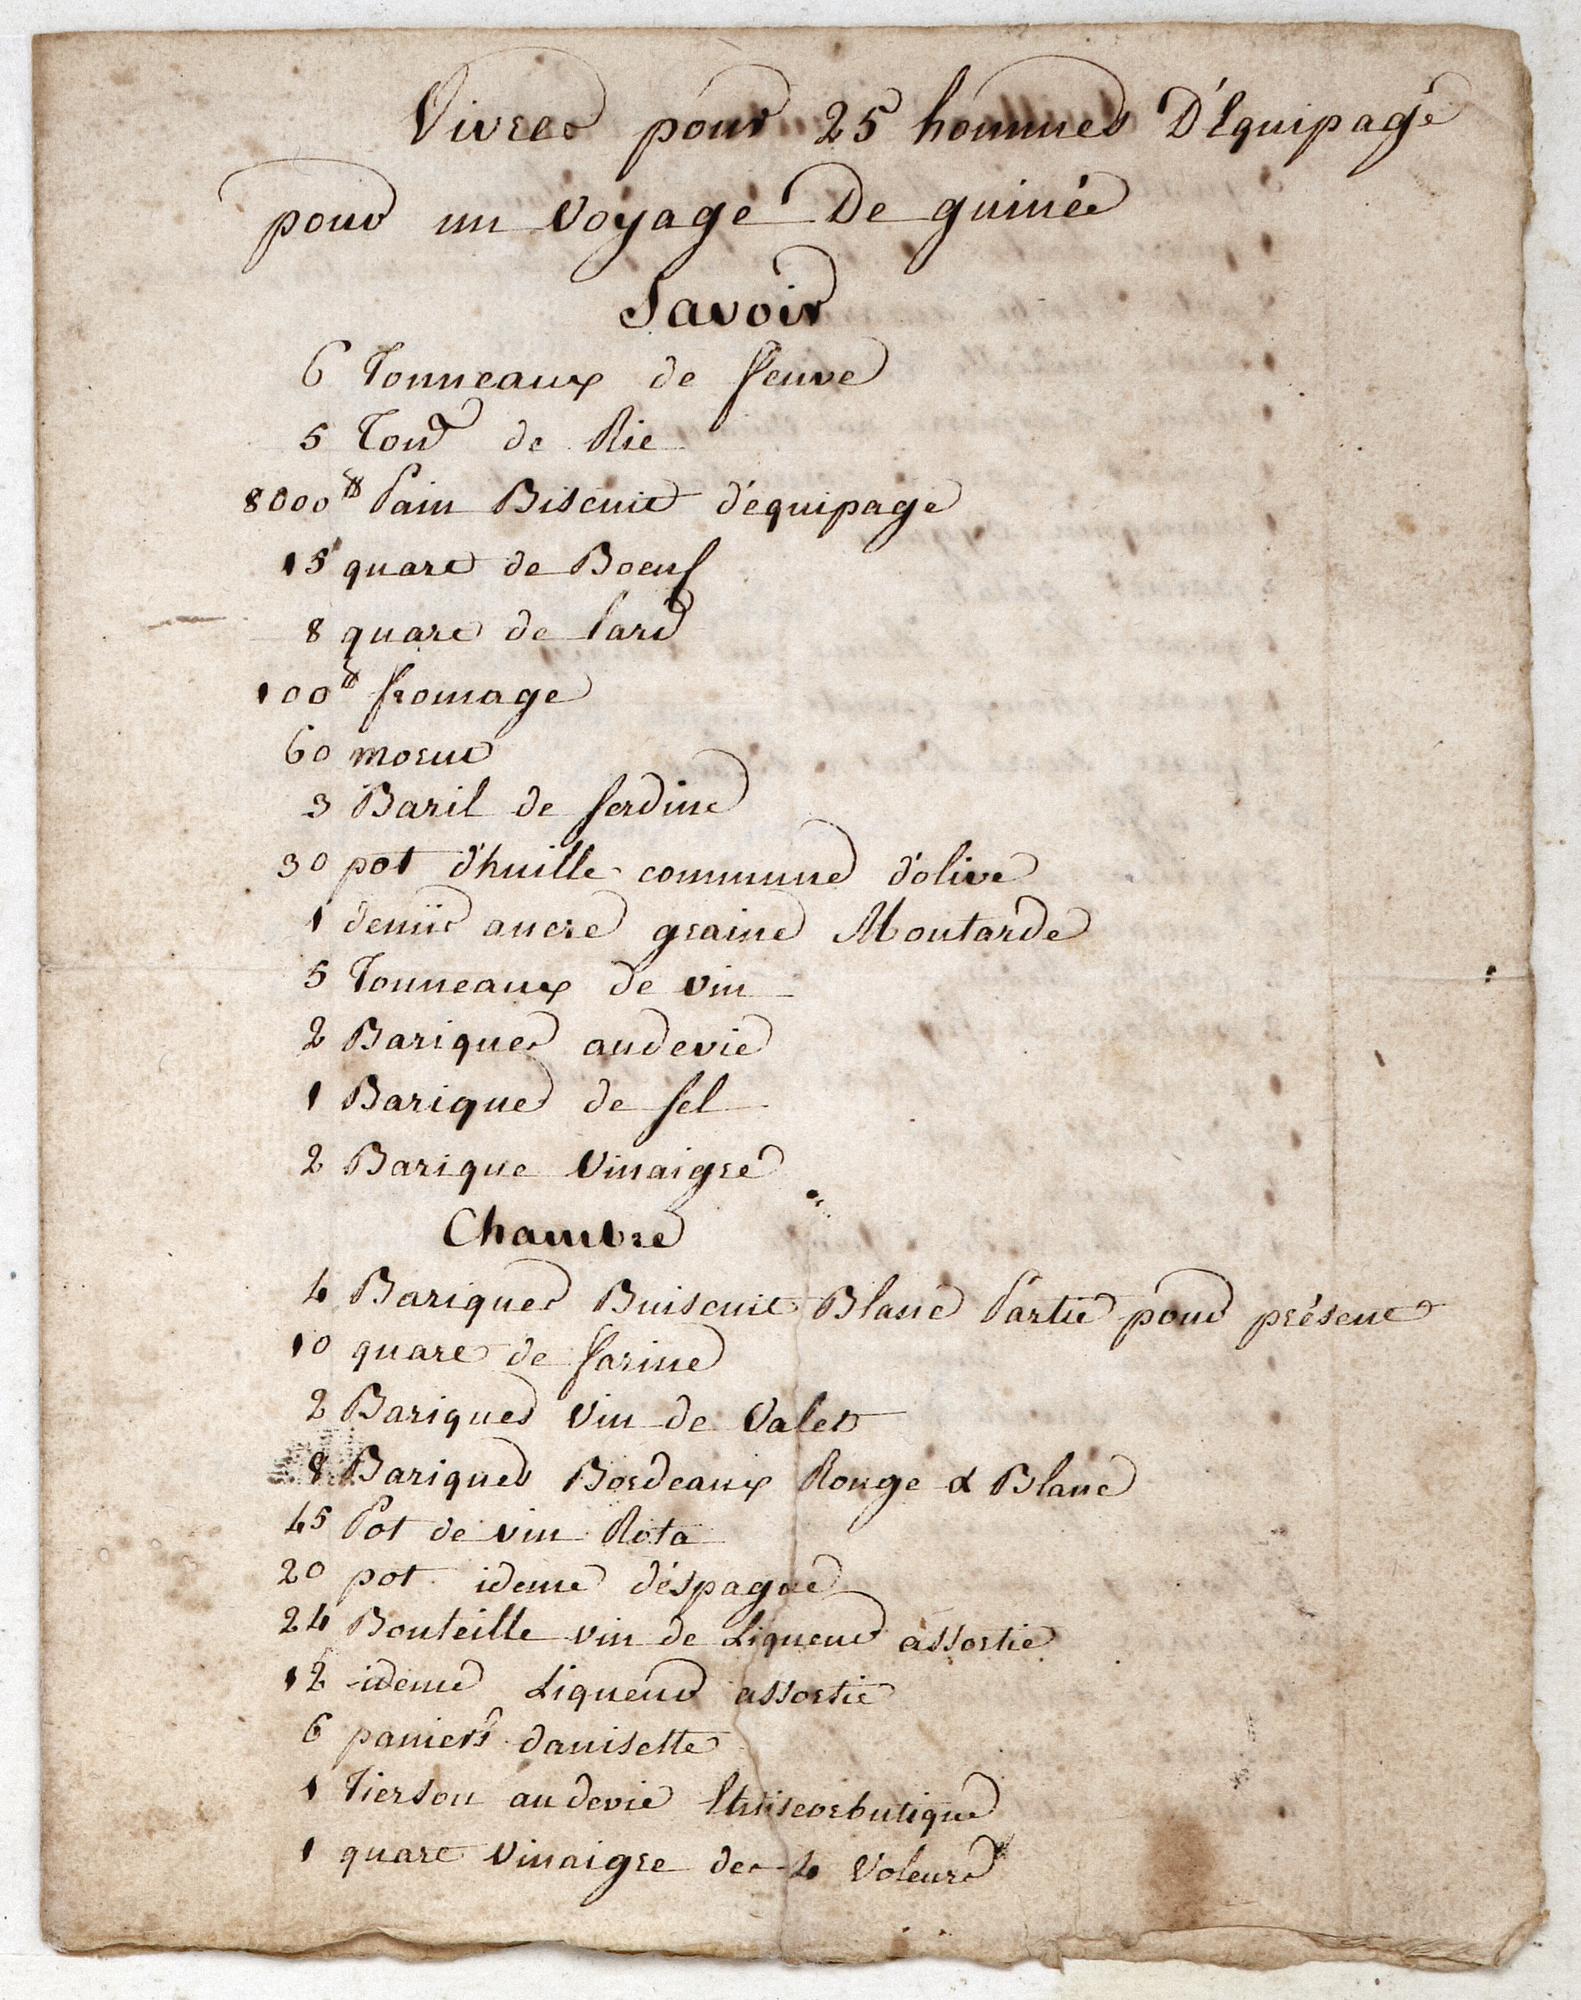 Vivres pour 25 hommes D'Equipage
pour un voyage De guinée
Savoir
6 Tonneaux de feuve
5 Tonx de Rie
8000 ℔ Pain Biscuit d'équipage
15 quart de Boeuf
8 quart de lard
100 ℔ fromage
60 morue
3 Baril de serdine
30 pot d'huille commune d'olive
1 demie ancre graine Moutarde
5 Tonneaux de vin
2 Bariques audevie
1 Barique de sel
2 Barique Vinaigre
Chambre
4 Bariques Buiscuit Blanc Partie pour présent
10 quart de farine
2 Bariques vin de Valet
8 Bariques Bordeaux Rouge & Blanc
45 Pot de vin Rota
20 pot ideme d'éspagne
24 Bouteille vin de Liqueur assortie
12 ideme Liqueur assortie
6 paniers danisette
1 Tierson audevie
1 quart Vinaigre des 4 Voleurs